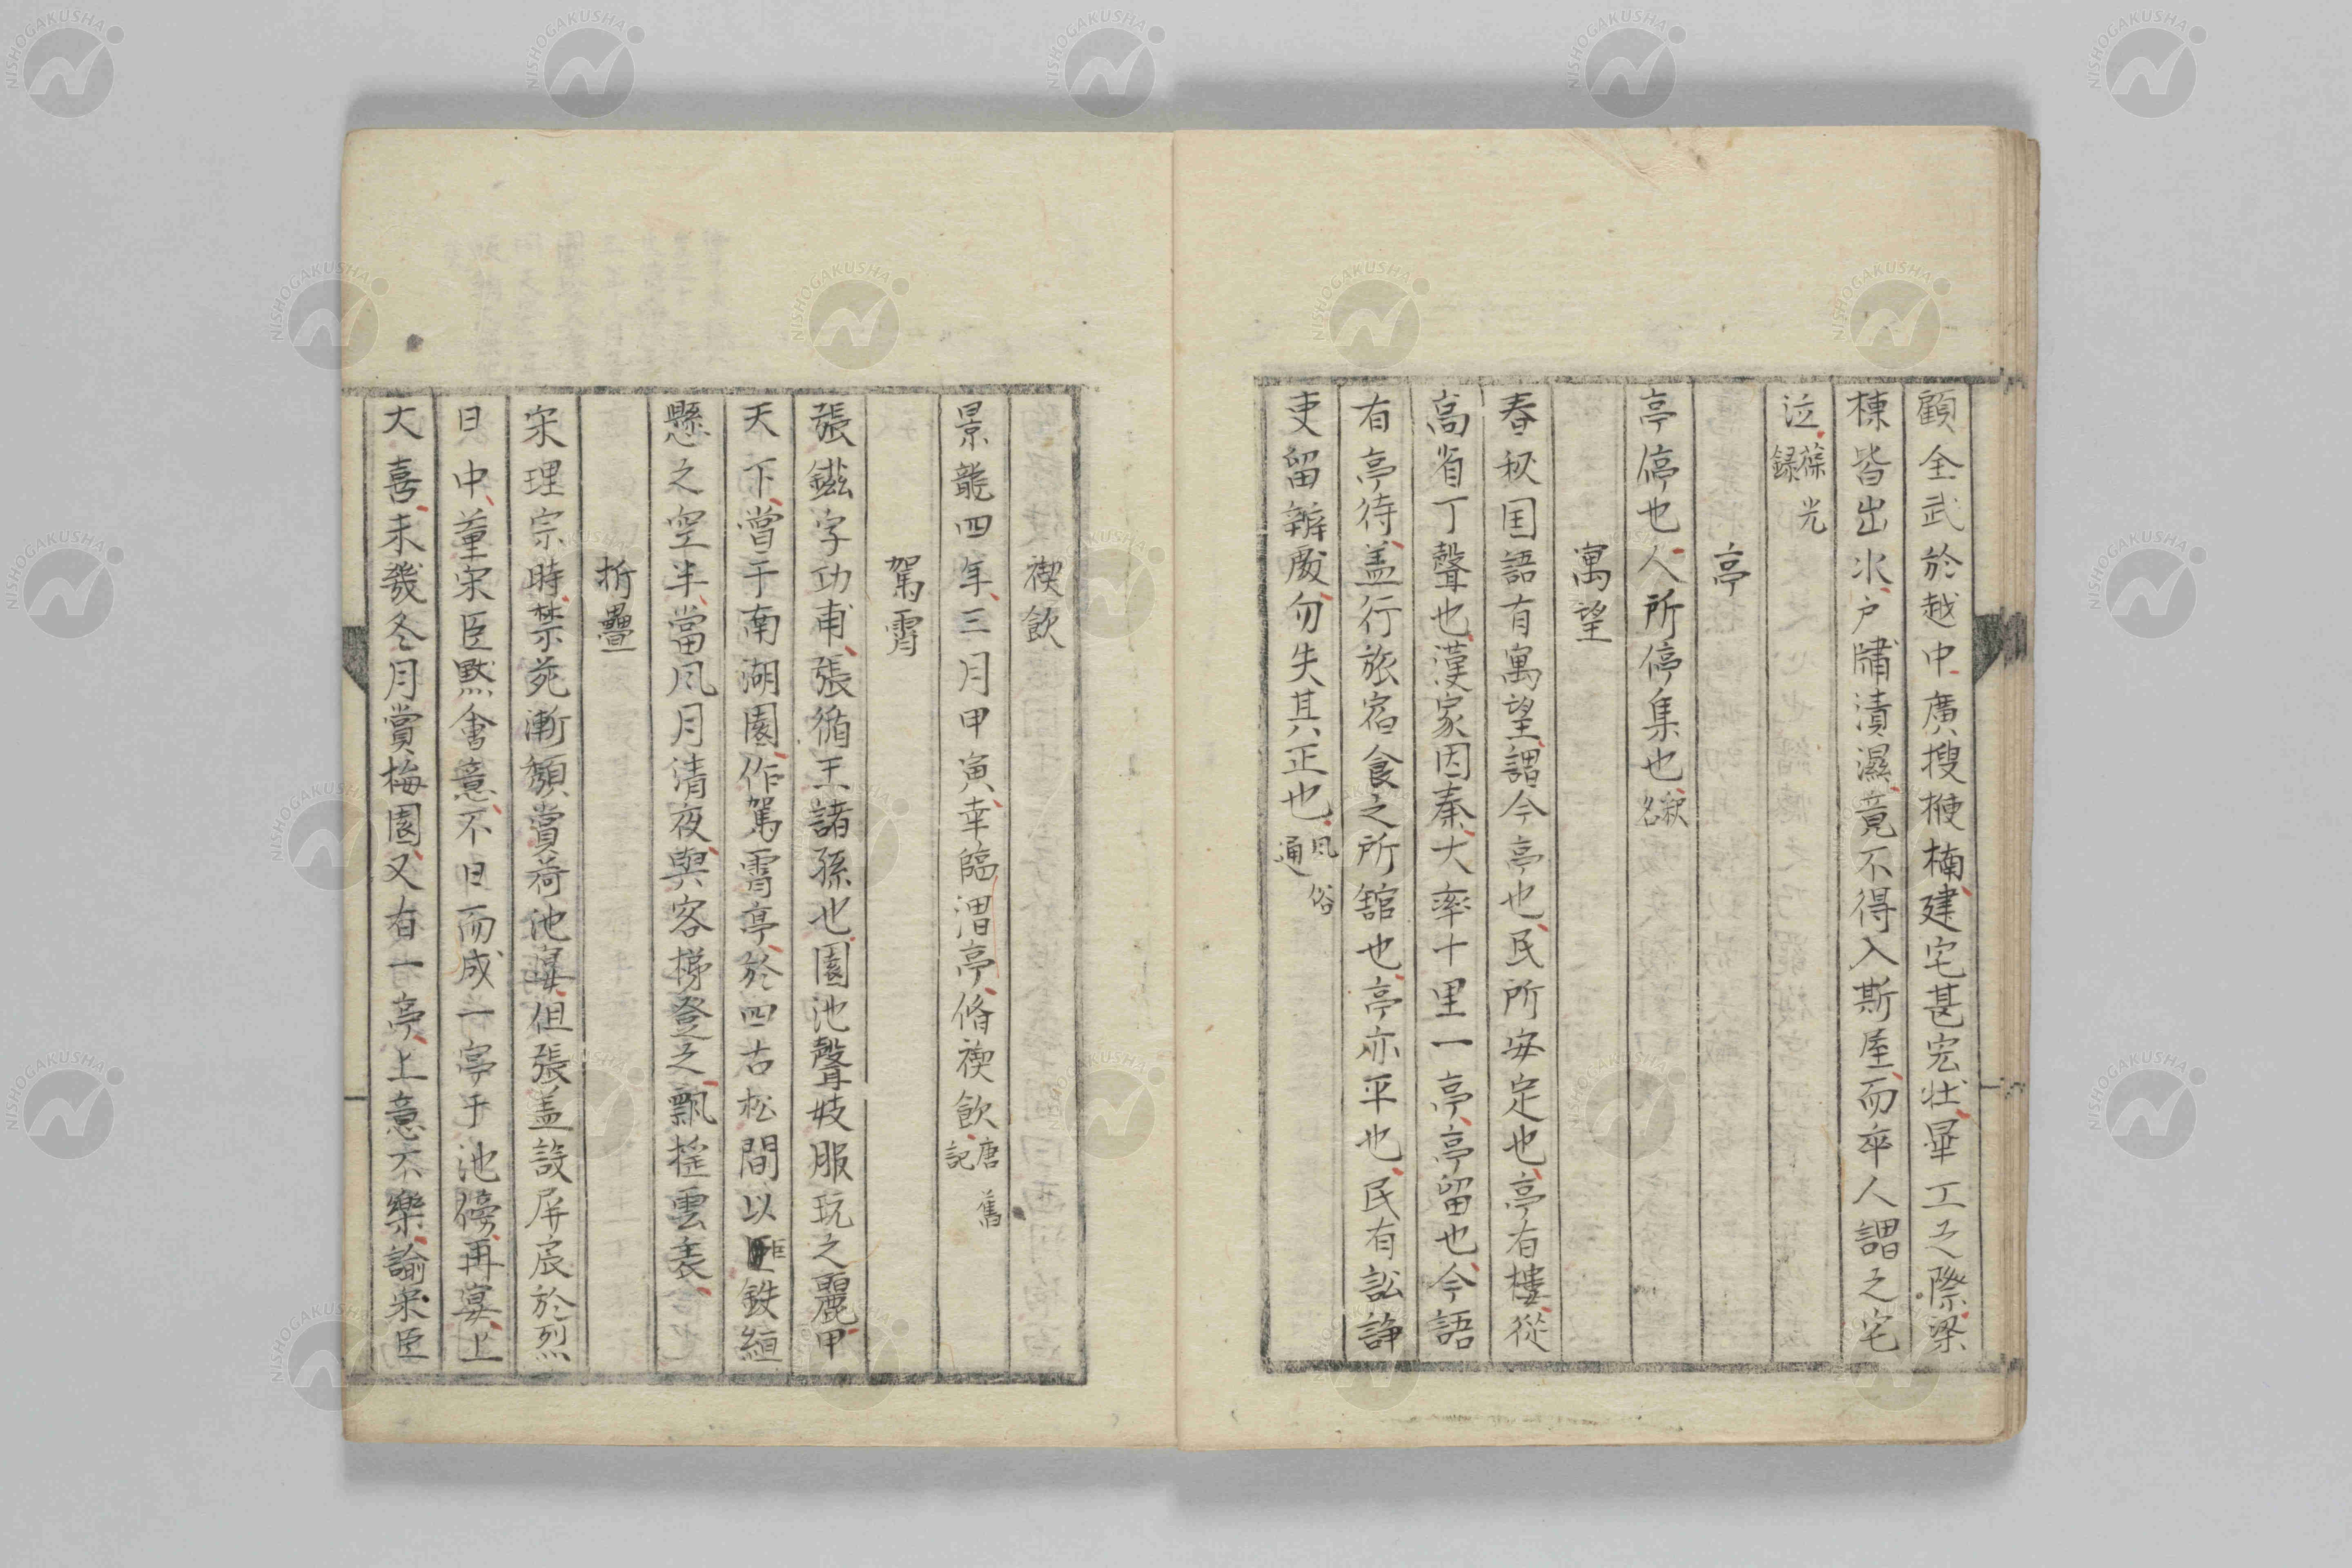 顧全武於越中廣搜楩楠建宅甚宏壯畢工之際梁
棟皆出水户牖漬濕竟不得入斯屋而卒人謂之宅
泣葆光録
亭
亭停也人所停集也釈名
寓望
春秋国語有寓望謂今亭也民所安定也亭有樓從
高省丁聲也漢家因秦大率十里一亭亭留也今語
有亭待盖行旅宿食之所舘也亭亦平也民有訟諍
吏留辧處勿失其正也風俗通
禊飲
景龍四年三月甲寅幸臨渭亭脩禊飲唐舊記
駕霄
張鎡字功甫張循王諸孫也園池聲妓服玩之麗甲
天下嘗于南湖園作駕霄亭於四古松間以巨鉄絙
懸之空半當風月清夜與客梯登之飄揺雲表
折疊
宋理宗時禁苑漸頽賞荷池宴但張盖設屏扆於烈
日中董宋臣黙會意不日而成一亭于池傍再宴上
大喜未幾冬月賞梅園又有一亭上意不樂諭宋臣